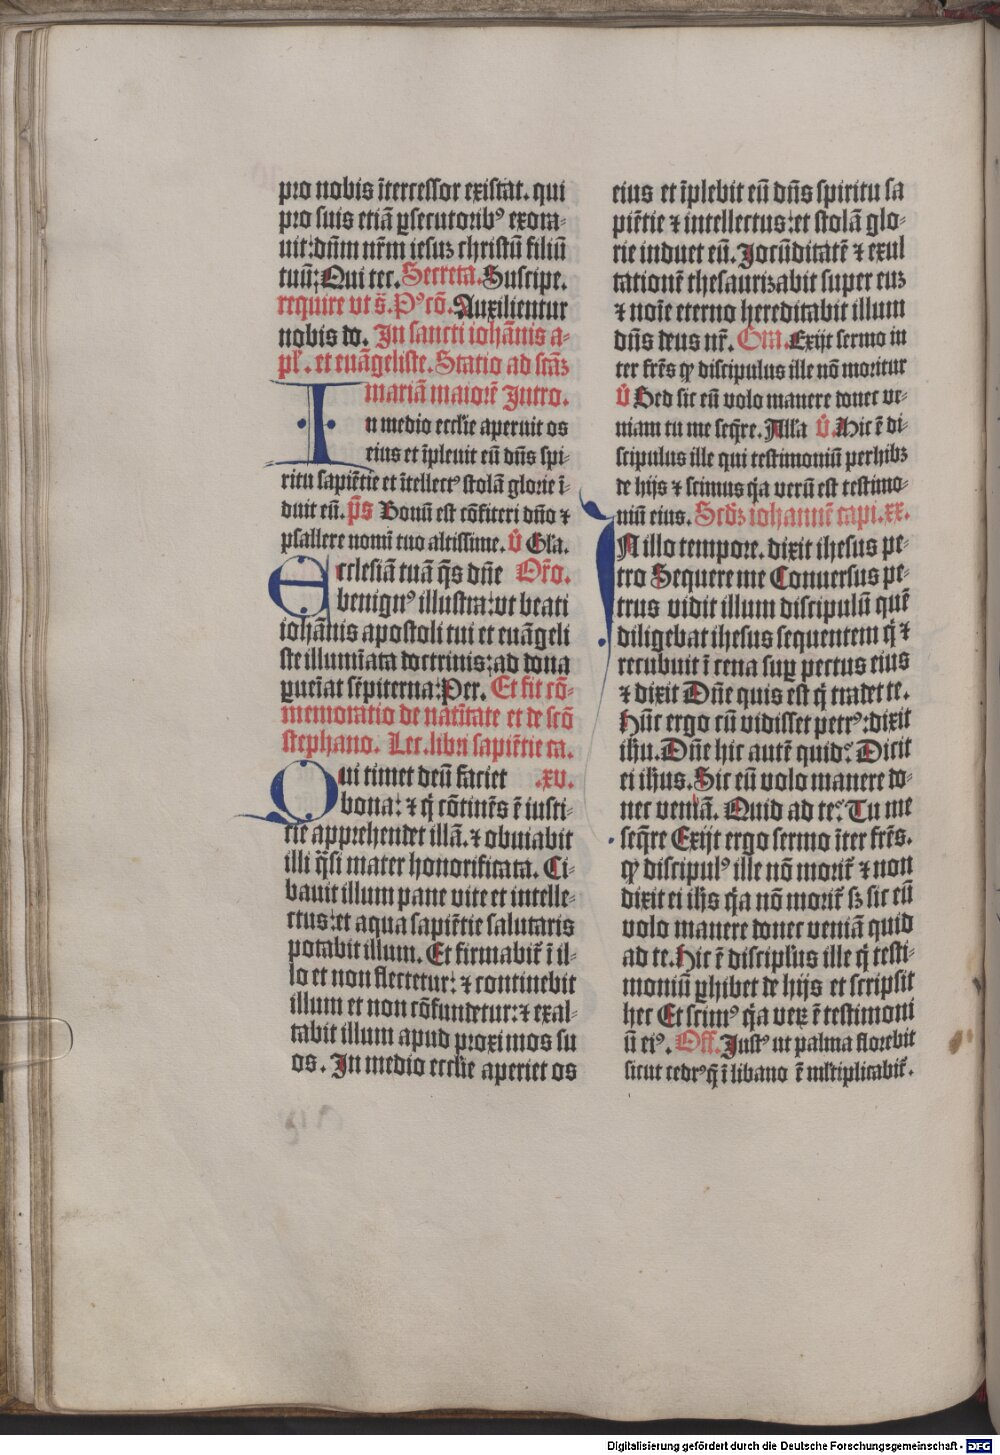 pro nobis ītercessor existat. qui
pro suis etiā ꝑsecutoribꝰ exora-
uit: dūm nr̄m iesuꝫ christū filiū
tuū: Qui tec. Secreta. Suscipe.
require vt s̄. Pꝰcō. Auxilientur
nobis do. In sancti iohānis a-
pl̄. et euāgeliste. Statio ad scāꝫ
mariā maiorē Intro.
In medio ecclīe aperuit os
eius et īpleuit eū dn̄s spi-
ritu sapiētie et ītellectꝰ stolā glorie ī-
duit eū. p̄s Bonū est cōfiteri dn̄o ⁊
psallere nomī tuo altissime. v̄ Gl̄a.
Ecclesiā tuā q̄s dn̄e Or̄o.
benignꝰ illustra: vt beati
iohānis apostoli tui et euāgeli
ste illumīata doctrinis: ad dona
ꝑueīat sēpiterna: Per. Et fit cō-
memoratio de natītate et de scō
stephano. Lec. libri sapiētie ca.
Qui timet deū faciet .xv.
bona: ⁊ q̄ cōtinēs ē iusti-
cie apprehendet illā. ⁊ obuiabit
illi q̄si mater honorificata. Ci-
bauit illum pane vite et intelle-
ctus: et aqua sapiētie salutaris
potabit illum. Et firmabit̄ ī il-
lo et non flectetur: ⁊ continebit
illum et non cōfundetur: ⁊ exal-
tabit illum apud proximos su
os. In medio ecclīe aperiet os
eius et īplebit eū dn̄s spiritu sa
piētie ⁊ intellectus: et stolā glo-
rie induet eū. Jocūditatē ⁊ exul
tationē thesaurizabit super euꝫ
⁊ noīe eterno hereditabit illum
dn̄s deus nr̄. Gra. Exijt sermo in
ter frēs ꝙ discipulus ille nō moritur
v̄ Sed sic eū volo manere donec ve-
niam tu me seq̄re. Alla v̄. Hic ē di-
scipulus ille qui testimoniū perhibꝫ
de hijs ⁊ scimus q̄a verū est testimo-
niū eius. Secd̄ꝫ iohannē capi. xx.
IN illo tempore. dixit ihesus pe-
tro Sequere me Conuersus pe-
trus vidit illum discipulū quē
diligebat ihesus sequentem q̄ ⁊
recubuit ī cena suꝑ pectus eius
⁊ dixit Dn̄e quis est q̄ tradet te.
Hūc ergo cū vidisset petrꝰ: dixit
ihū. Dn̄e hic autē quid? Dicit
ei ihūs. Sic eū volo manere do-
nec veniā. Quid ad te? Tu me
seq̄re Exijt ergo sermo īter frēs.
ꝙ discipulꝰ ille nō morit̄ ⁊ non
dixit ei ihs̄ q̄a nō morit̄ sꝫ sic eū
volo manere donec veniā quid
ad te. Hic ē disciplus ille q̄ testi-
moniū ꝑhibet de hijs et scripsit
hec Et scimꝰ q̄a veꝝ ē testimoni
ū eiꝰ. Off. Justꝰ ut palma florebit
sicut cedrꝰ q̄ ī libano ē ml̄tiplicabit̄.
Digitalisierung gefördert durch die Deutsche Forschungsgemeinschaft - DFG